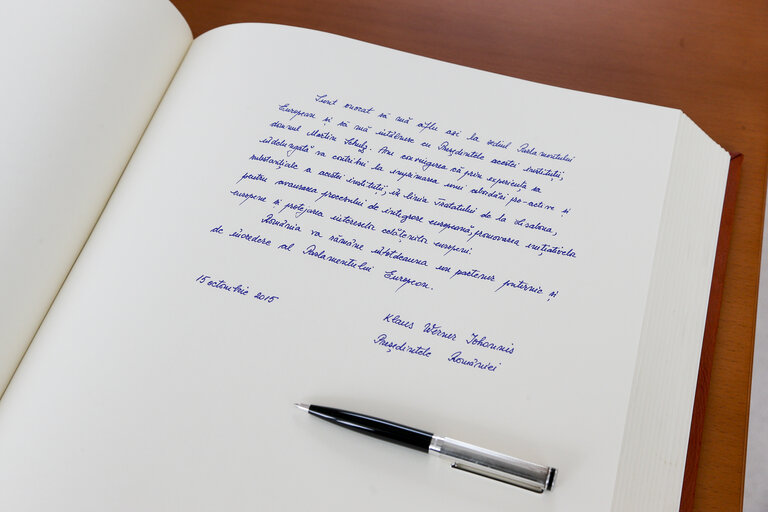 Sunt onorat să mă aflu azi la sediul Parlamentului
European și să mă întâlnesc cu Președintele acestei instituții,
domnul Martin Schulz. Am convingerea că prin experiența sa
îndelungată va contribui la imprimarea unei abordări pro-active și
substanțiale a acestei instituții, în linia Tratatului de la Lisabona,
pentru avansarea procesului de integrare europeană, promovarea inițiativelor
europene și protejarea intereselor cetățenilor europeni.
România va rămâne întotdeauna un partener puternic și
de încredere al Parlamentului European.
15 octombrie 2015
Klaus Werner Iohannis
Președintele României